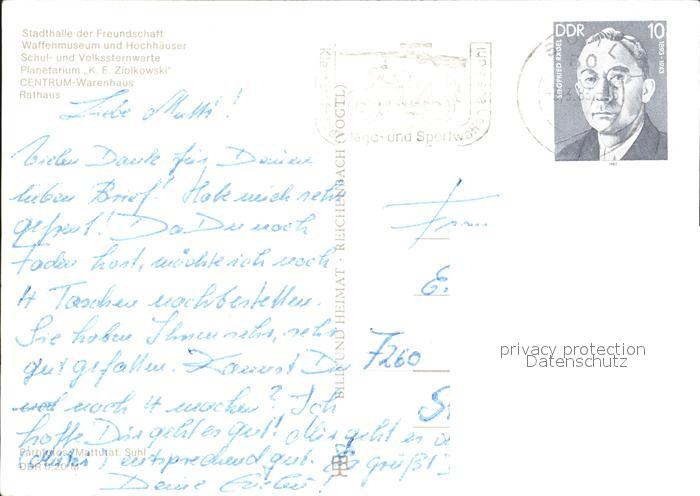 Stadthalle der Freundschaft
Waffenmuseum und Hochhäuser
Schul- und Volkssternwarte
Planetarium „K. E. Ziolkowski"
CENTRUM-Warenhaus
Rathaus
Liebe Mutti!
Vielen Dank für Deinen
lieben Brief! Habe mich sehr
gefreut! Da Du noch
Faden hast, möchte ich noch
4 Taschen nachbestellen.
Sie haben Ihnen sehr, sehr
gut gefallen. Kannst Du
noch 4 machen? Ich
hoffe Dir geht es gut! Mir geht es
entsprechend gut. Es grüßt
Deine
Suhl
DDR 0,20 M
BILD UND HEIMAT · REICHENBACH (VOGTL)
Jagd- und Sportwaffen aus Suhl
DDR 10
SIEGFRIED RÄDEL
1893-1943
Frau
E.
7260
privacy protection
Datenschutz